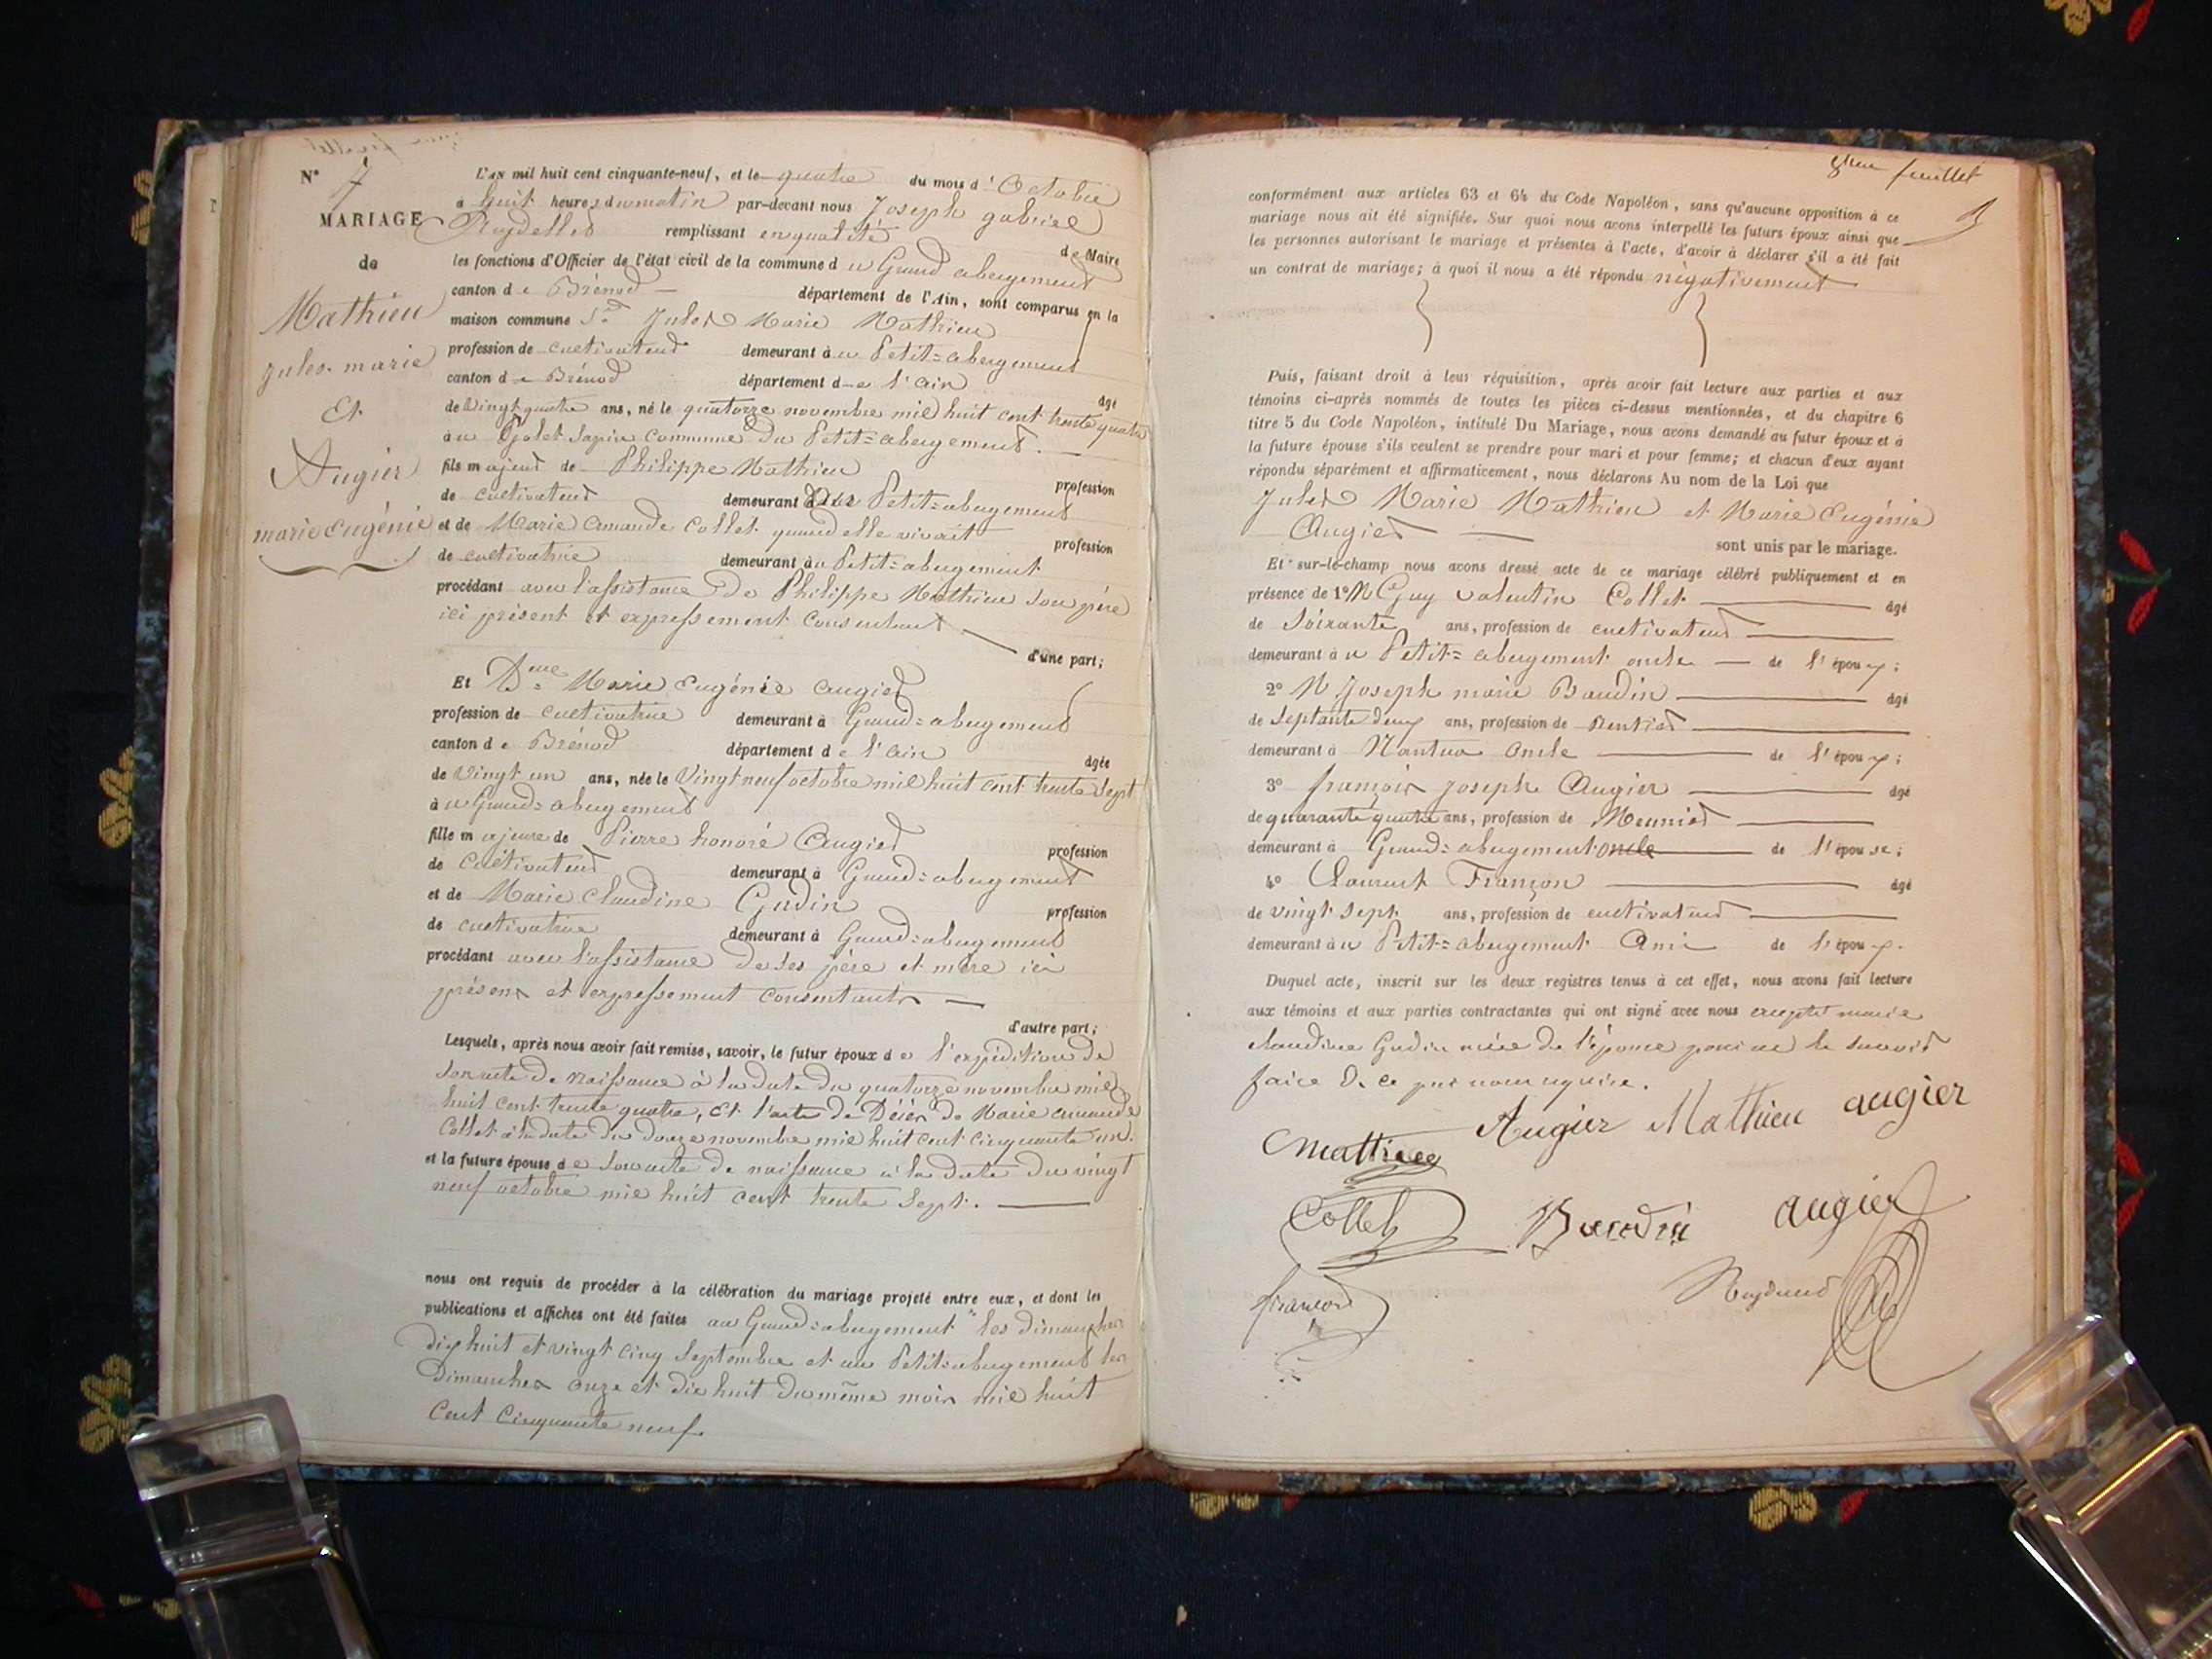 N° 7
MARIAGE
de
Mathieu
jules marie
Et
Augier
marie Eugénie
L'AN mil huit cent cinquante-neuf, et le quatre du mois d'Octobre
à huit heures du matin par-devant nous Joseph gabriel
remplissant en qualité de Maire
les fonctions d'Officier de l'état civil de la commune du Grand abergement
canton de Brénod département de l'Ain, sont comparus en la
maison commune Sr Jules Marie Mathieu
profession de cultivateur demeurant au Petit=abergement
canton de Brénod département de l'ain âgé
de Vingt quatre ans, né le quatorze novembre mil huit cent trente quatre
au Golet Sapin commune du Petit=abergement.
fils majeur de Philippe Mathieu profession
de cultivateur demeurant au Petit=abergement
et de Marie amande Collet quand elle vivait profession
de cultivatrice demeurant au Petit=abergement
procédant avec l'assistance de Philippe Mathieu son père
ici présent et expressement consentant
d'une part;
Et Dme Marie Eugénie augier
profession de cultivatrice demeurant à Grand=abergement
canton de Brénod département de l'ain âgée
de Vingt un ans, née le Vingt neuf octobre mil huit cent trente Sept
au Grand=abergement
fille majeure de Pierre honoré Augier profession
de cultivateur demeurant à Grand=abergement
et de Marie Claudine Gudin profession
de cultivatrice demeurant à Grand=abergement
procédant avec l'assistance de ses père et mère ici
présens et expressement consentants
d'autre part;
Lesquels, après nous avoir fait remise, savoir, le futur époux de l'expédition de
son acte de naissance à la date du quatorze novembre mil
huit cent trente quatre, et l'acte de Décès de Marie amande
Collet à la date du douze novembre mil huit cent cinquante un.
et la future épouse de son acte de naissance à la date du vingt
neuf octobre mil huit cent trente Sept.
nous ont requis de procéder à la célébration du mariage projeté entre eux, et dont les
publications et affiches ont été faites au Grand=abergement les dimanches
dix huit et vingt cinq Septembre et au Petit=abergement les
Dimanches onze et dix huit du même mois mil huit
cent cinquante neuf.
8eme feuillet
conformément aux articles 63 et 64 du Code Napoléon, sans qu'aucune opposition à ce
mariage nous ait été signifiée. Sur quoi nous avons interpellé les futurs époux ainsi que
les personnes autorisant le mariage et présentes à l'acte, d'avoir à déclarer s'il a été fait
un contrat de mariage; à quoi il nous a été répondu négativement
Puis, faisant droit à leur réquisition, après avoir fait lecture aux parties et aux
témoins ci-après nommés de toutes les pièces ci-dessus mentionnées, et du chapitre 6
titre 5 du Code Napoléon, intitulé Du Mariage, nous avons demandé au futur époux et à
la future épouse s'ils veulent se prendre pour mari et pour femme; et chacun d'eux ayant
répondu séparément et affirmativement, nous déclarons Au nom de la Loi que
Jules Marie Mathieu et Marie Eugénie
Augier sont unis par le mariage.
Et sur-le-champ nous avons dressé acte de ce mariage célébré publiquement et en
présence de 1° M Guy Valentin Collet âgé
de Soixante ans, profession de cultivateur
demeurant au Petit=abergement oncle de l'époux;
2° M Joseph marie Baudin âgé
de Septante deux ans, profession de Rentier
demeurant à Nantua oncle de l'époux;
3° françois joseph Augier âgé
de quarante quatre ans, profession de Meunier
demeurant à Grand=abergement oncle de l'épouse;
4° Laurent Françon âgé
de vingt Sept ans, profession de cultivateur
demeurant au Petit=abergement Ami de l'époux.
Duquel acte, inscrit sur les deux registres tenus à cet effet, nous avons fait lecture
aux témoins et aux parties contractantes qui ont signé avec nous excepté marie
claudine Gudin mère de l'épouse pour ne le savoir
faire de ce par nous requise.
Mathieu Augier Mathieu augier
Collet Baudin augier
françon